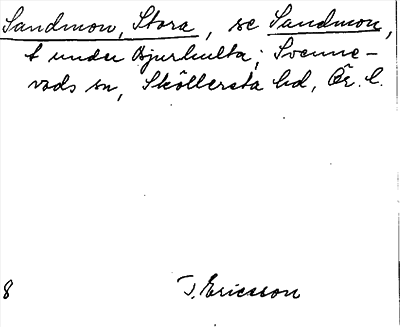 Sandmon, Stora, se Sandmon,
t under Bjurhulta; Svenne-
vads sn, Sköllersta hd, Ör. l.
8 T. Ericsson